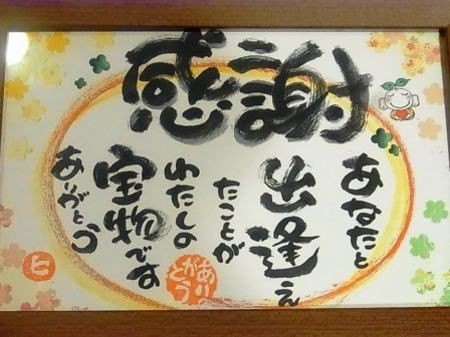 感謝
あなたと
出逢え
たことが
わたしの
宝物です
ありがとう
ありがとう
ヒ